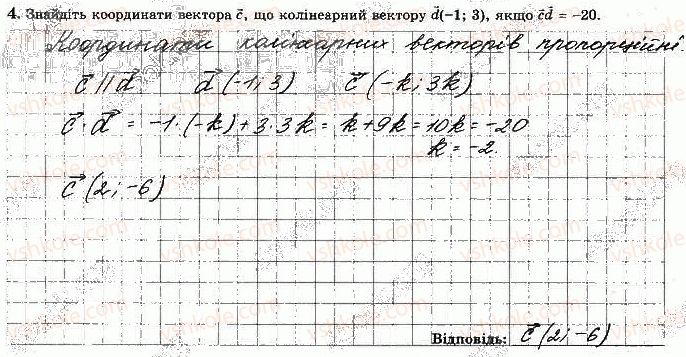 4. Знайдіть координати вектора c⃗, що колінеарний вектору d⃗(–1; 3), якщо c⃗d⃗ = –20.
Координати колінеарних векторів пропорційні
c⃗ || d⃗   d⃗ (-1; 3)   c⃗ (-k; 3k)
c⃗ · d⃗ = -1·(-k)+3·3k = k+9k = 10k = -20
k = -2.
c⃗ (2; -6)
Відповідь: c⃗ (2; -6)